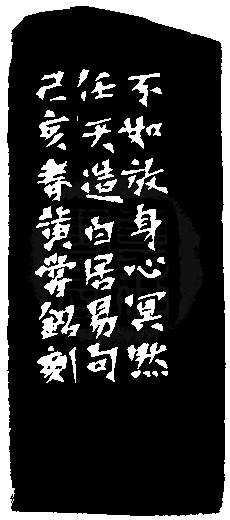 不如放身心冥然
任天造白居易句
己亥春黄莘銘刻